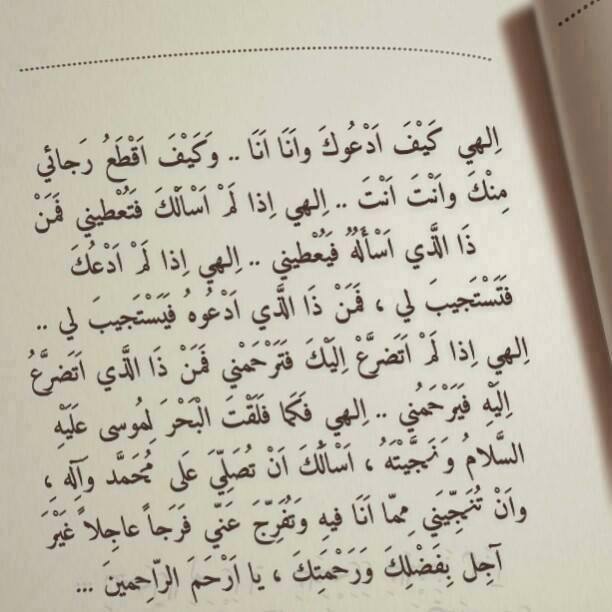 اِلهي كَيْفَ اَدْعُوكَ واَنَا اَنَا .. وَكَيْفَ اَقْطَعُ رَجائي
مِنْكَ واَنْتَ اَنْتَ .. اِلهي اِذا لَمْ اَسْاَلْكَ فَتُعْطيني فَمَنْ
ذَا الَّذي اَسْأَلُهُ فَيُعْطيني .. اِلهي اِذا لَمْ اَدْعُكَ
فَتَسْتَجيبَ لي ، فَمَنْ ذَا الَّذي اَدْعُوهُ فَيَسْتَجيبَ لي ..
اِلهي اِذا لَمْ اَتَضرَّعْ اِلَيْكَ فَتَرْحَمْني فَمَنْ ذَا الَّذي اَتَضرَّعُ
اِلَيْهِ فَيَرْحَمُني .. اِلهي فَكَما فَلَقْتَ الْبَحْرَ لِمُوسى عَلَيْهِ
السَّلامُ وَنَجَّيْتَهُ ، اَسْاَلُكَ اَنْ تُصَلِّيَ عَلى مُحَمَّد وَآلِهِ ،
واَنْ تُنَجِّيَني مِمّا اَنَا فيهِ وَتُفَرِّجَ عَنّي فَرَجاً عاجِلاً غَيْرَ
آجِل بِفَضْلِكَ وَرَحْمَتِكَ ، يا اَرْحَمَ الرّاحِمينَ ...